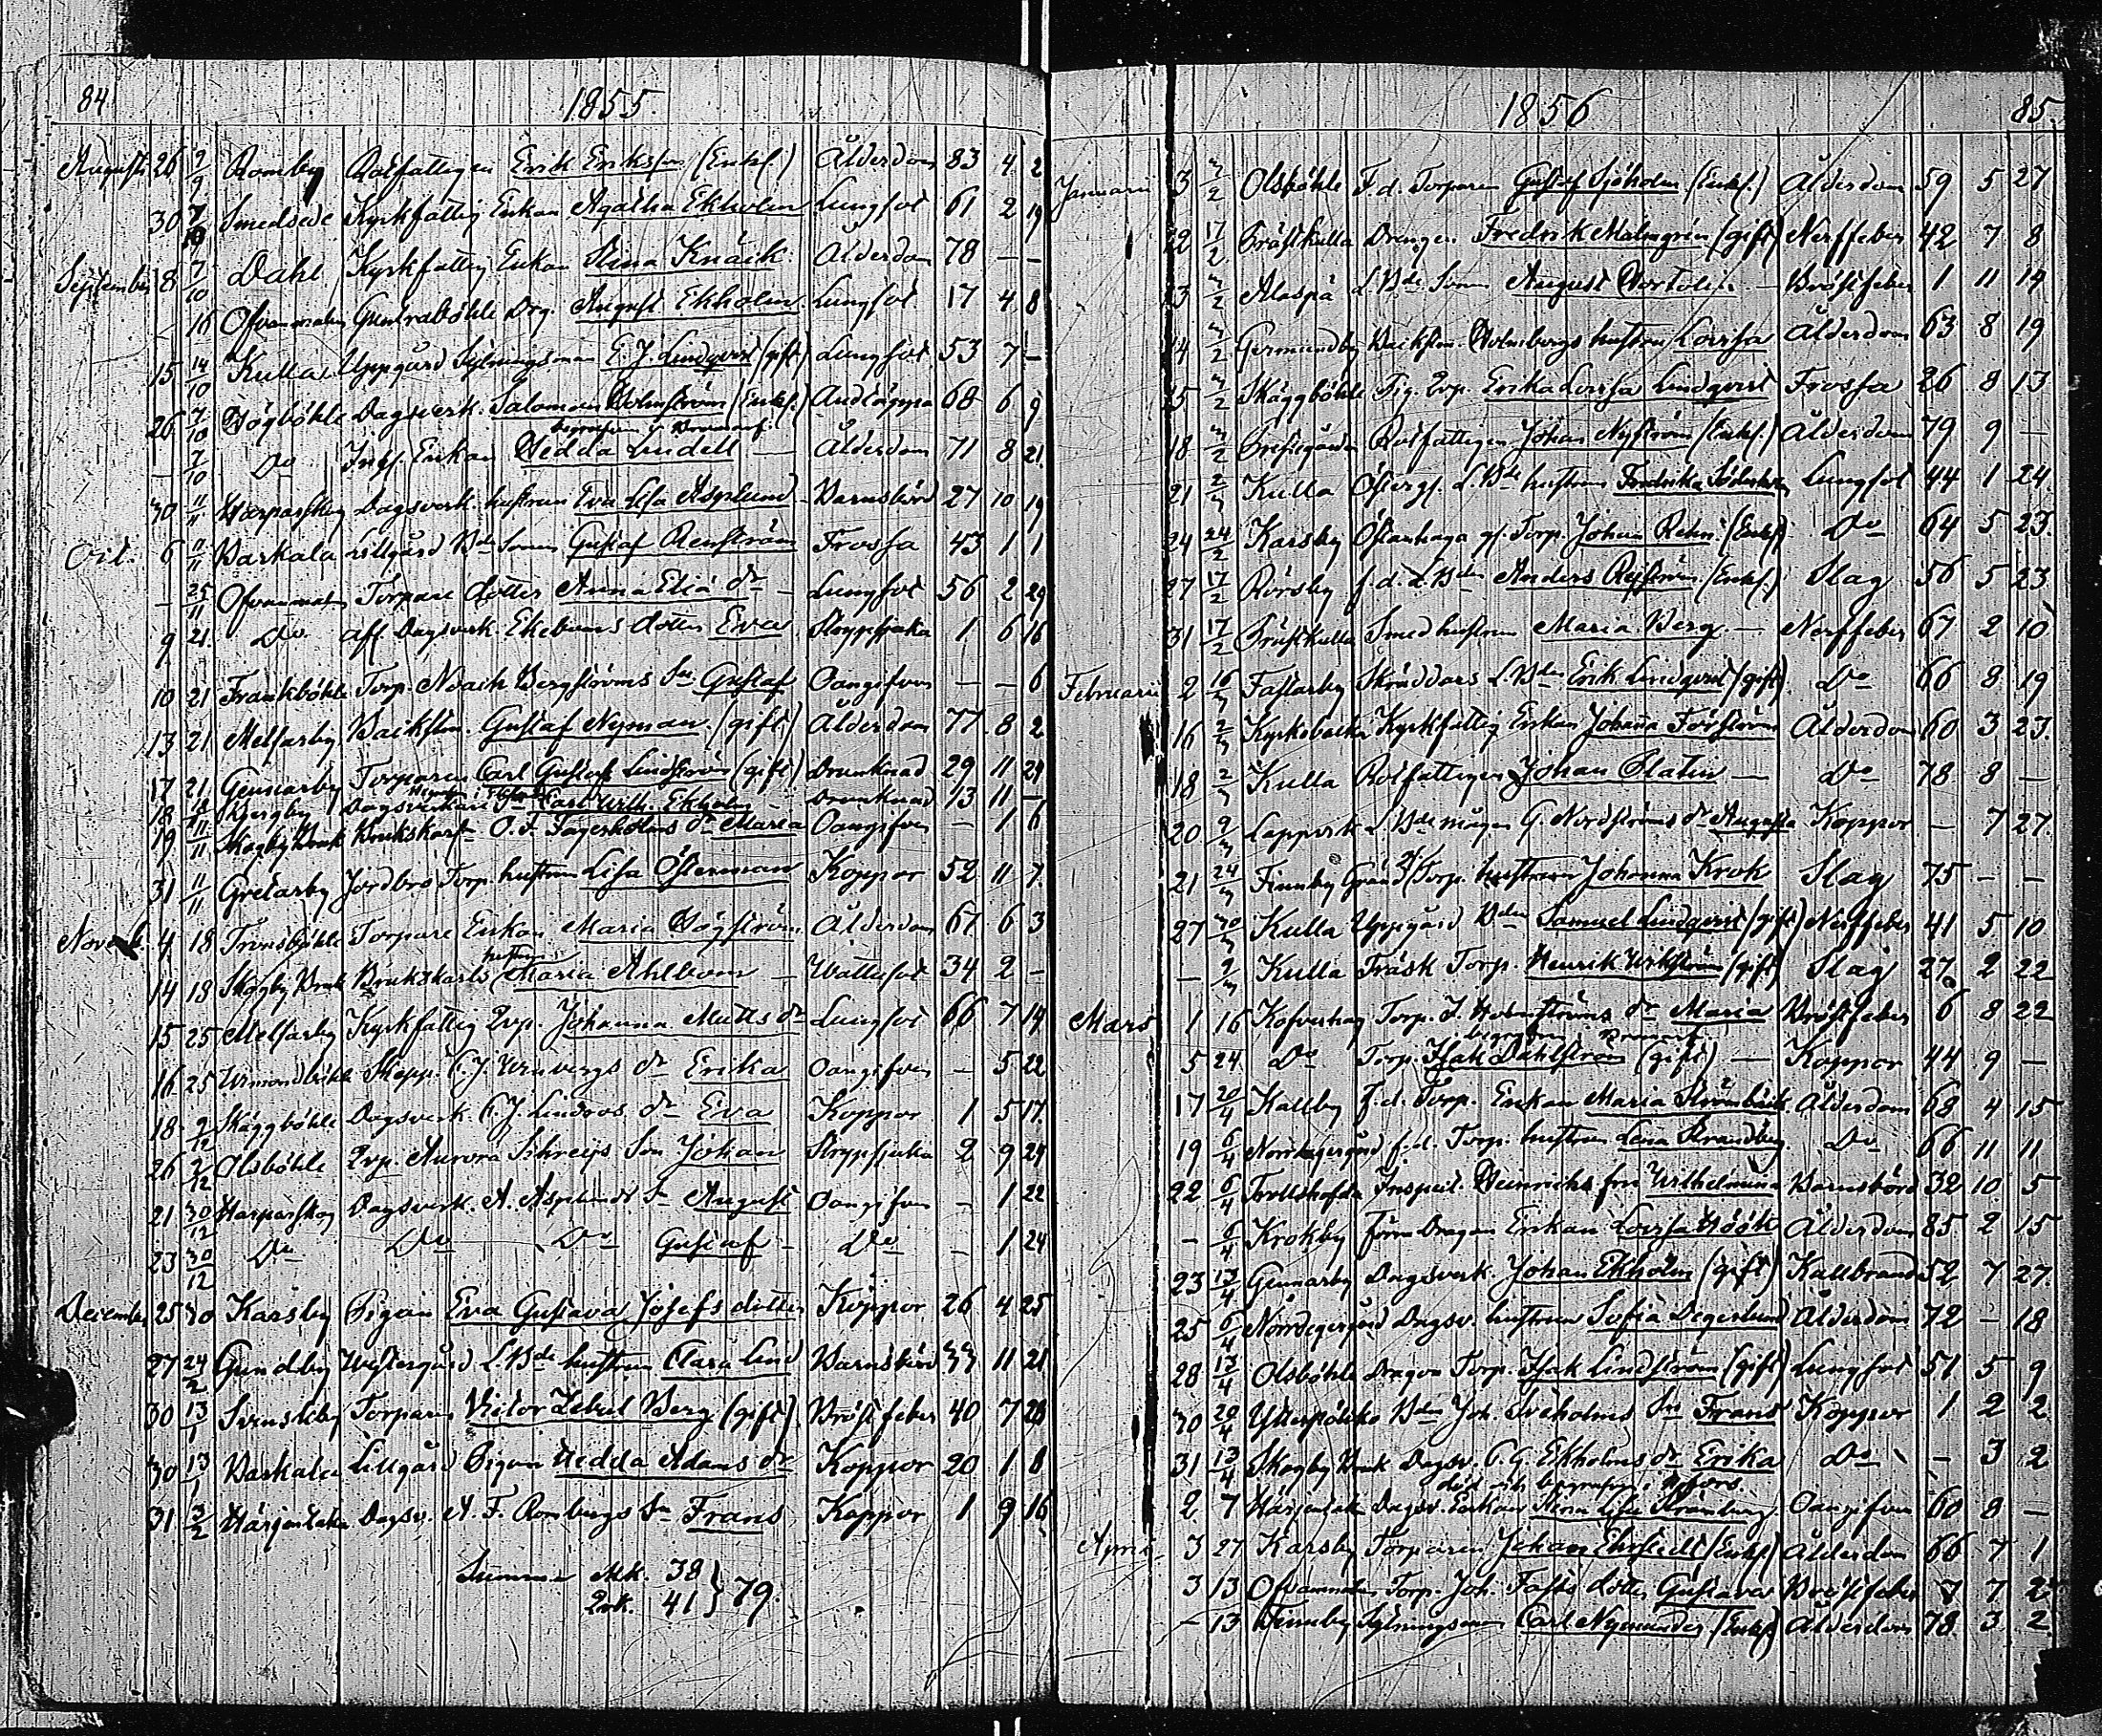 84
1855.
Augusti 26 2/9 Romby Rotfattigen Erik Eriksson (Enkl.) Ålderdom 83 4 2
30 7/10 Smedsede Kyrkfattig Enkan Agatha Ekholm Lungsot 61 2 19
September 8 7/10 Dahl Kyrkfattig Enkan Stina Knaik Ålderdom 78 – –
– 16 Ofvanmalm Drg. August Ekholm Lungsot 17 4 8
15 14/10 Kulla Uppgård E. J. Lindqvist (gift) Lungsot 53 7 –
26 7/10 Högböhle Dagsverk. Salomon Holmström (Enkl.) Andtäppa 68 6 9
– 7/10 Do Enkan Hedda Lindell – Ålderdom 71 8 21.
30 11/11 Harparskog Dagsverk. hustrun Eva Lisa Asplund – Barnsbörd 27 10 19
Oct. 6 11/11 Baskala Lillgård Bde Sonen Gustaf Renström Frossa 43 1 1
– 25/11 Ofvanmalm Torpare dotter Anna Eliæ dr – Lungsot 56 2 29
9 21. Do afl. Dagsverk. Ekeboms dotter Eva Strypsjuka 1 6 16
10 21 Frankböhle Torp. Noach Bergströms Sn Gustaf Oangifven – – 6
13 21 Melsarby Backstm. Gustaf Nyman (gift) Ålderdom 77 8 2
17 21 Gennarby Torparen Carl Gustaf Lindström (gift) Drunknad 29 11 24
18 18/11 Bjersby Dagsverkare Carl Wilh. Ekholm – Drunknad 13 11 –
19 11/11 Skogby Bruk Brukskarl O. F. Fagerholms dr Maria Oangifven – 1 6
31 11/11 Gretarby Jordbro Torp. hustrun Lisa Österman Koppor 52 11 7.
Novemb. 4 18 Tronsböhle Torpare Enkan Maria Högström Ålderdom 67 6 3
hustru
14 18 Skogby Bruk Brukskarls Maria Ahlbom – Wattusot 34 2 –
15 25 Melsarby Kyrkfattig Qvp. Johanna Matts dr Lungsot 66 7 14
16 25 Skepp. C. J. Winbergs dr Erika Oangifven – 5 22
18 2/12 Skäggböhle Dagsverk. C. J. Lindroos dr Eva Koppor 1 5 17.
26 2/12 Olsböhle Qvp. Aurora Schreijs Son Johan Strypsjuka 2 9 24
21 30/12 Harparskog Dagsverk. A. Asplunds Sn August Oangifven – 1 22
23 30/12 Do Do Do Gustaf – Do – 1 24
December 25 30 Karsby Pigan Eva Gustava Josefs dotter Koppor 26 4 25
27 24/2 Gundby Westergård L. Bde hustrun Clara Lind Barnsbörd 33 11 21
30 13/1 Svensteby Torparen Victor Zebul Berg (gift) Bröstfeber 40 7 28
30 13/1 Baskala Lillgård Pigan Hedda Adams dr Koppor 20 1 8
31 3/2 Härjentaka Dagsv. A. F. Rombergs Sn Frans Koppor 1 9 16
Summa Mk. 38
Qvk. 41 } 79.
1856
85.
Januari 3 3/2 Olsböhle F. d. Torparen Gustaf Sjöholm (Enkl.) Ålderdom 59 5 27
12 17/2 Prästkulla Drengen Fredrik Malmgrén (gift) Nerffeber 42 7 8
13 3/2 Alaspä L. Bde Sonen August – Bröstfeber 1 11 14
14 3/2 Germundby Backstm. Holmbergs hustru Lovisa Ålderdom 63 8 19
15 3/2 Skäggböhle Pig. Qvp. Erika Lovisa Lindqvist Frossa 26 8 13
18 3/2 Prestegården Rotfattigen Johan Nyström (Enkl.) Ålderdom 79 9 –
21 2/3 Kulla Östergs. L. Bde hustrun Fredrika Lungsot 44 1 24
24 24/2 Karsby Östanhaga gl. Torp. Johan Rehn (Enkl.) Do 64 5 23.
27 17/2 Rörsby f. d. L. Bden Anders (Enkl.) Slag 56 5 23
31 17/2 Prästkulla Smed hustrun Maria Berg. – Nerffeber 67 2 10
Februari 2 16/3 Fastarby Skräddars L. Bden Erik Lindqvist (gift) Do 66 8 19
16 2/3 Kyrkobacka Kyrkfattig Enkan Johanna Forsström Ålderdom 60 3 23.
18 2/3 Kulla Rotfattigen Johan Platin – Do 78 8 –
20 9/3 Lappvik L. Bde mågen G. Nordströms dr Augusta Koppor – 7 27.
21 24/3 Finnby Gränd Torp. hustrun Johanna Krok Slag 75 – –
27 30/3 Kulla Uppgård Bden Samuel Lindqvist (gift) Nerffeber 41 5 10
– 9/3 Kulla Träsk Torp. Henrik Wikström (gift) Slag 27 2 22
Mars 1 16 Kofverhag Torp. J. Holmströms dr Maria Bröstfeber 6 8 22
5 24 Do Torp. Isak Dahlström (gift) – Koppor 44 9 –
17 20/4 Kallby f. d. Torp. Enkan Maria Strömbäck Ålderdom 68 4 15
19 6/4 f. d. Torp. hustrun Lena Strandberg Do 66 11 11
22 6/4 Trollshofda Inspect. Heinrichs fru Wilhelmina Barnsbörd 32 10 5
– 6/4 Krokby förra Dragon Enkan Lovisa Höök Ålderdom 85 2 15
23 13/4 Gennarby Dagsverk. Johan Ekholm (gift) Kallbrand 52 7 27.
25 6/4 Dagsv. hustrun Sofia Degerlund Ålderdom 72 – 18
28 13/4 Olsböhle Dragon Torp. Isak Lindström (gift) Lungsot 51 5 9
30 20/4 Ytterpölsko Bden Joh. Sn Frans Koppor 1 2 2
31 13/4 Skogby Bruk Dagsv. C. G. Ekholms dr Erika Do – 3 2
död och begrafven i
2 7 Härjentaka Dagsv. Enkan Stina Lisa Oangifven 60 8 –
April 3 27 Karsby Torparen Johan (Enkl.) Ålderdom 66 7 1
3 13 Ofvanmalm Torp. Joh. Fasts dotter Gustava Bröstfeber 7 7 2
– 13 Finnby Carl Nymander (Enkl.) Ålderdom 78 3 2.